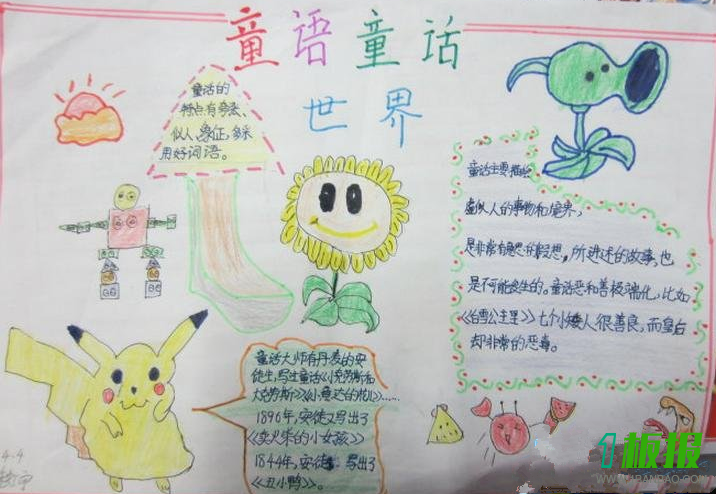 童语童话
世界
童话的
特点有夸张、
似人、象征,多采
用好词语。
童话主要描绘
虚似人的事物和境界,
是非常有 的假想,所讲述的故事,也
是不可能发生的。童话恶和善极端化,比如
《白雪公主里》七个小矮人很善良,而皇后
却非常的恶毒。
童话大师有丹麦的安
徒生,写生童话《小克劳斯和
大克劳斯》《小意达的花》……
1896年,安徒又写出了
《卖火柴的小女孩》
1844年,安徒 写出了
《丑小鸭》。
4.4
1板报